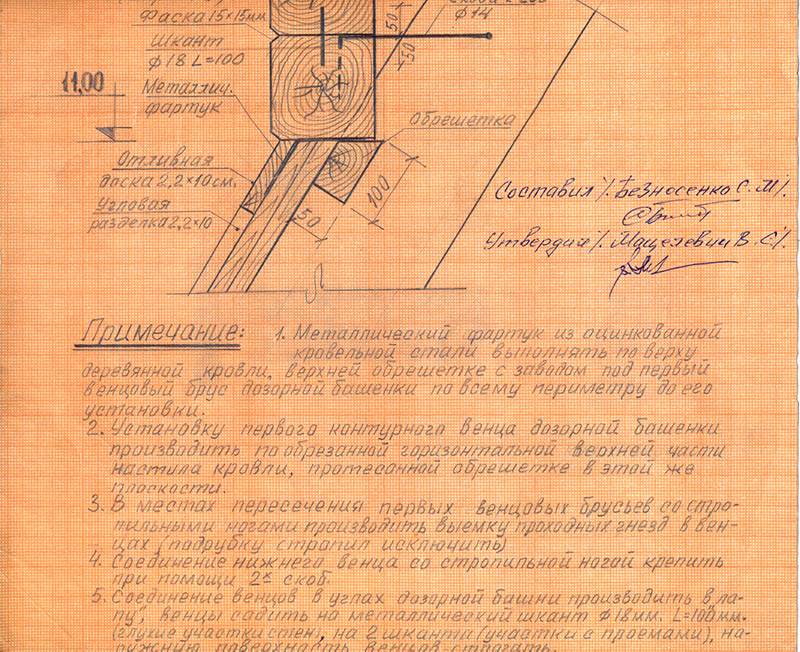 Фаска 15×15мм
Шкант
ф18 L=100
11,00
Металлич.
фартук
50
50
ф14
Обрешетка
Отливная
доска 2,2×10см.
Угловая
разделка 2,2×10
50
100
Составил /. Безносенко С.М/.
Утвердил /. Мацелевич В.С/.
Примечание:
1. Металлический фартук из оцинкованной
кровельной стали выполнять по верху
деревянной кровли, верхней обрешетке с заводом под первый
венцовый брус дозорной башенки по всему периметру до его
установки.
2. Установку первого контурного венца дозорной башенки
производить по обрезанной горизонтальной верхней части
настила кровли, протесанной обрешетке в этой же
плоскости.
3. В местах пересечения первых венцовых брусьев со стро-
пильными ногами производить выемку проходных гнезд в вен-
цах (подрубку стропил исключить)
4. Соединение нижнего венца со стропильной ногой крепить
при помощи 2х скоб.
5. Соединение венцов в углах дозорной башни производить в „ла-
пу", венцы садить на металлический шкант ф18мм. L=100мм.
(глухие участки стен), на 2 шканта (участки с проемами), на-
ружную поверхность венцов строгать.